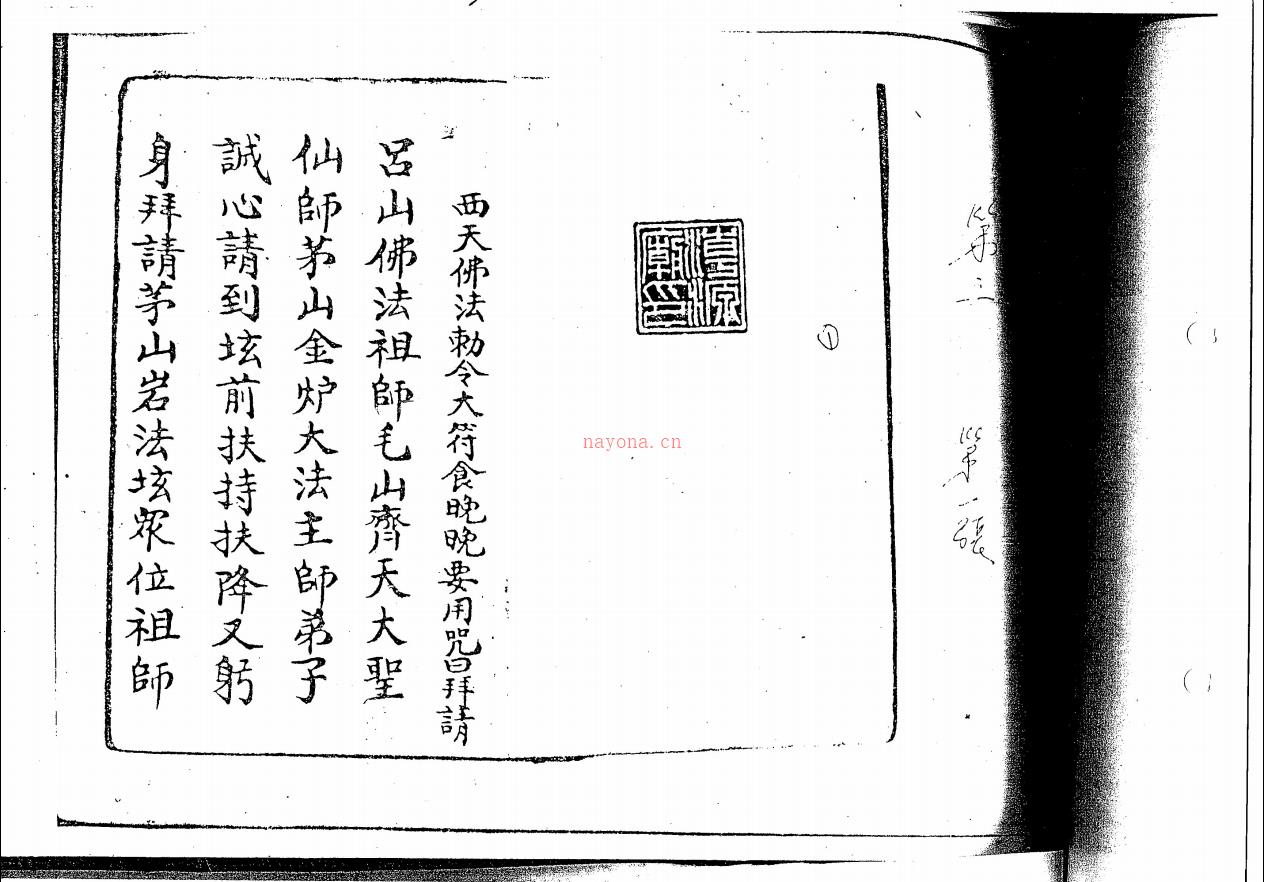 第三
第一張
①
清源
廟印
nayona.cn
西天佛法勅令大符食晚晚要用咒曰拜請
呂山佛法祖師毛山齊天大聖
仙師茅山金炉大法主師弟子
誠心請到坛前扶持扶降又躬
身拜請茅山岩法坛眾位祖師